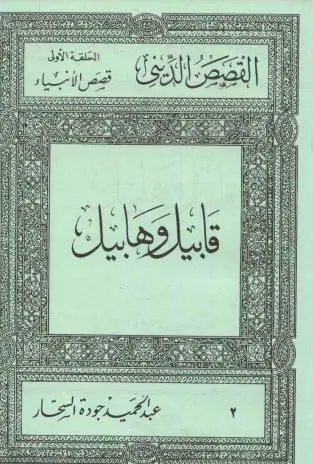 القصص الدينى
الحلقة الأولى
قصص الأنبياء
قابيل وهابيل
٢
عبد الحميد جودة السحار